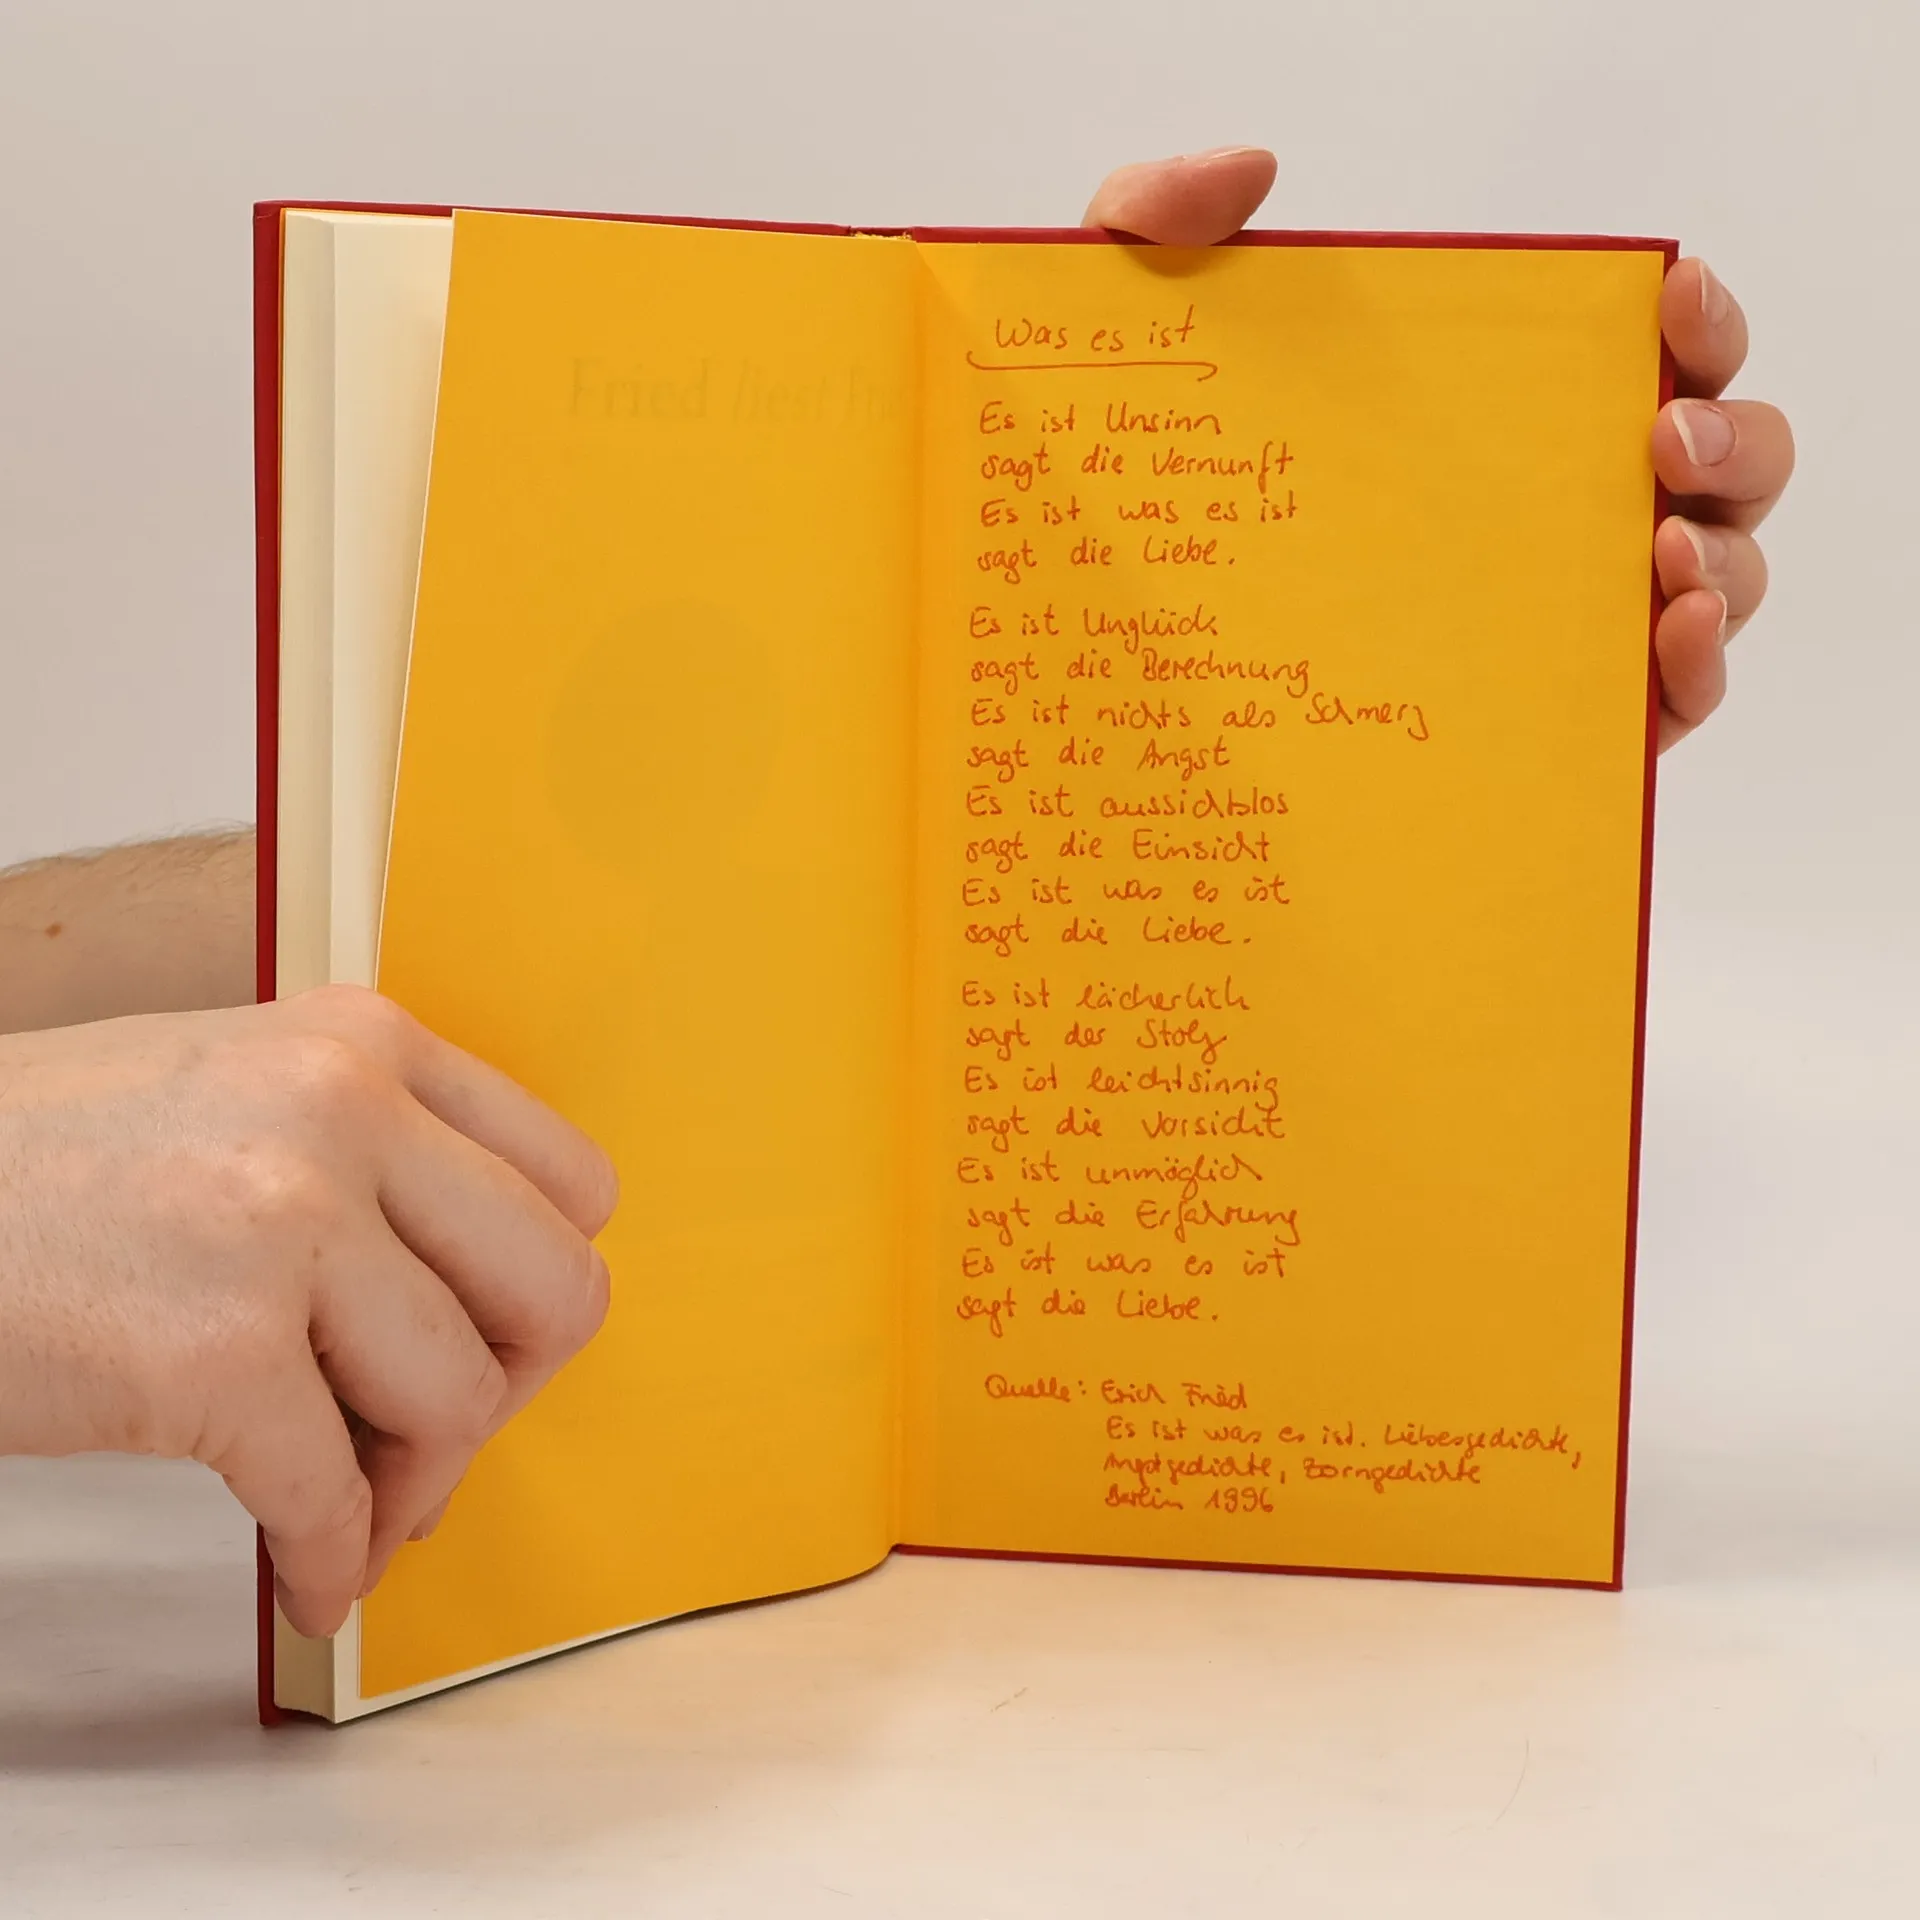 Fried liest
Was es ist
Es ist Unsinn
sagt die Vernunft
Es ist was es ist
sagt die Liebe.
Es ist Unglück
sagt die Berechnung
Es ist nichts als Schmerz
sagt die Angst
Es ist aussichtslos
sagt die Einsicht
Es ist was es ist
sagt die Liebe.
Es ist lächerlich
sagt der Stolz
Es ist leichtsinnig
sagt die Vorsicht
Es ist unmöglich
sagt die Erfahrung
Es ist was es ist
sagt die Liebe.
Quelle: Erich Fried
Es ist was es ist. Liebesgedichte,
Angstgedichte, Zorngedichte
Berlin 1996